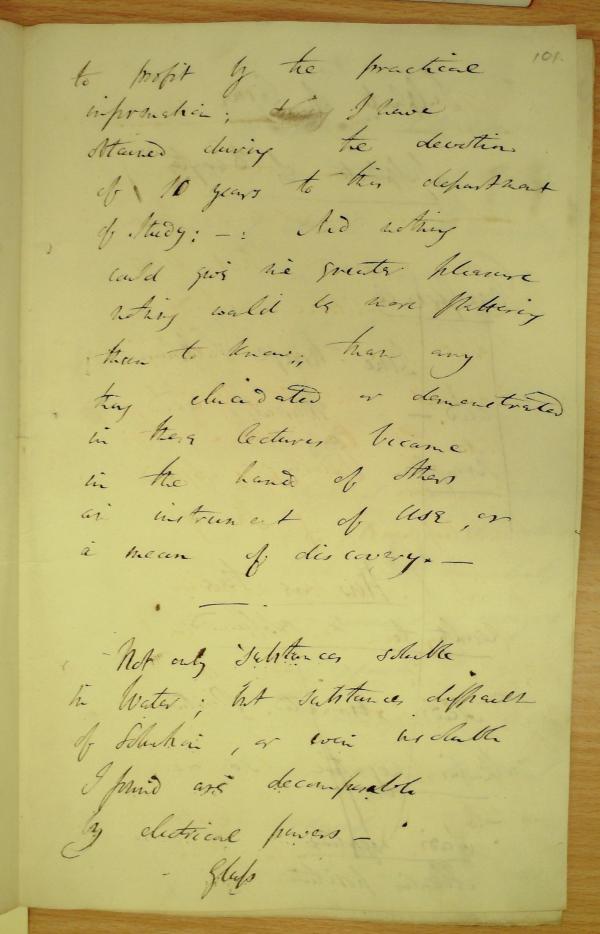 101.
to profit by the practical
information; I have
obtained during the devotion
of 10 years to this department
of Study; — : And nothing
could give me greater pleasure
nothing would be more flattering
than to know; that any
thing elucidated or demonstrated
in these lectures became
in the hand of others
an instrument of use, or
a mean of discovery. —
Not only substances soluble
in Water; but substances difficult
of Solution, or even insoluble
I found are decomposable
by electrical powers —
Glass